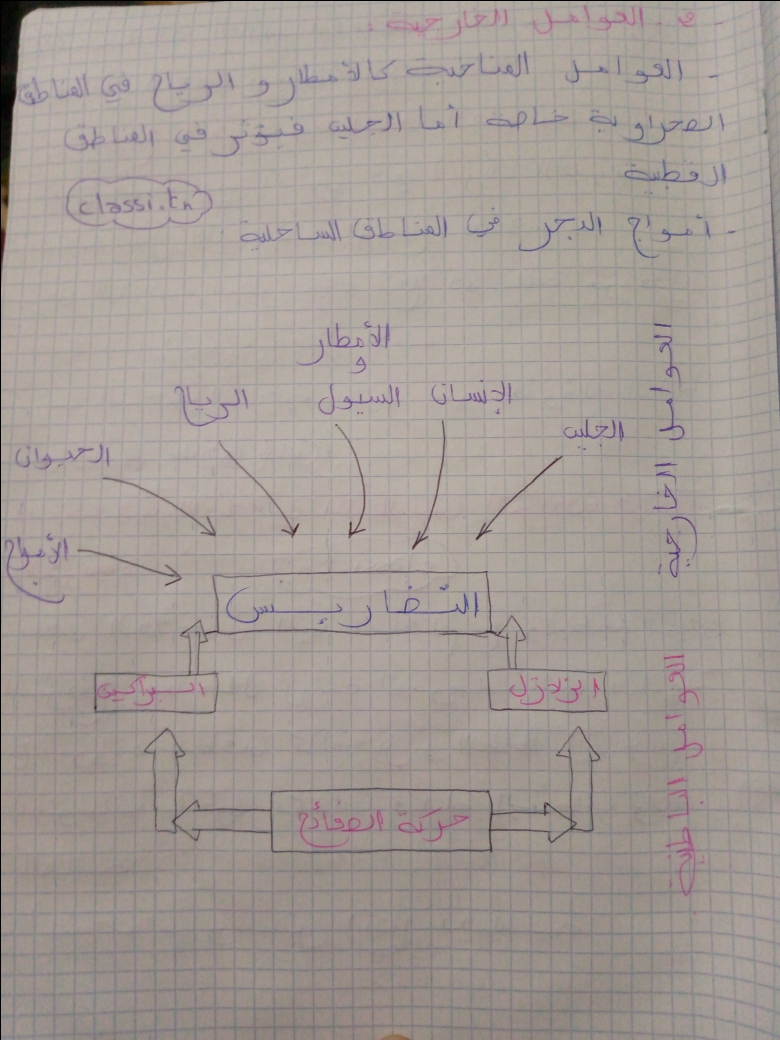 2 - العوامل الخارجية :
- العوامل المناخية كالأمطار و الرياح في المناطق
الصحراوية خاصة أما الجليد فيؤثر في المناطق
القطبية
classi.tn
- أمواج البحر في المناطق الساحلية
الأمطار
و
السيول
الإنسان
الرياح
الجليد
الحيوان
الأمواج
العوامل الخارجية
التضاريس
الزلازل
البراكين
حركة الصفائح
العوامل الباطنية